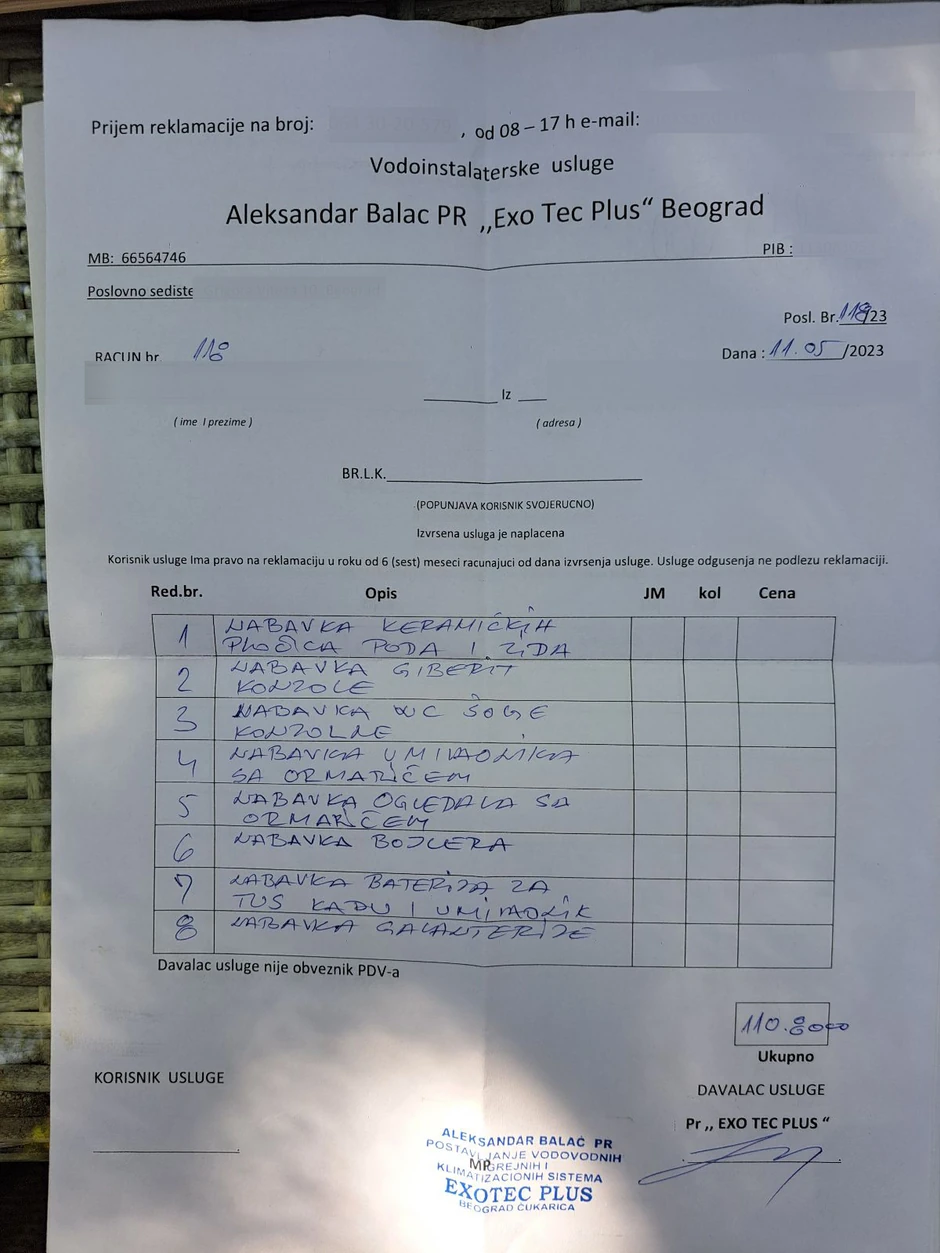 Prijem reklamacije na broj: , od 08 – 17 h e-mail:
Vodoinstalaterske usluge
Aleksandar Balac PR „Exo Tec Plus“ Beograd
MB: 66564746 PIB :
Poslovno sediste
Posl. Br. 118/23
RACUN br 118 Dana : 11.05/2023
Iz
( ime I prezime ) ( adresa )
BR.L.K.
(POPUNJAVA KORISNIK SVOJERUCNO)
Izvrsena usluga je naplacena
Korisnik usluge Ima pravo na reklamaciju u roku od 6 (sest) meseci racunajuci od dana izvrsenja usluge. Usluge odgusenja ne podlezu reklamaciji.
Red.br. Opis JM kol Cena
1 NABAVKA KERAMIČKIH
PLOČICA PODA I ZIDA
2 NABAVKA GIBERIT
KONZOLE
3 NABAVKA WC ŠOLJE
KONZOLNE
4 NABAVKA UMIVAONIKA
SA ORMARIĆEM
5 NABAVKA OGLEDALA SA
ORMARIĆEM
6 NABAVKA BOJLERA
7 NABAVKA BATERIJA ZA
TUS KADU I UMIVAONIK
8 NABAVKA GALANTERIJE
Davalac usluge nije obveznik PDV-a
Ukupno
KORISNIK USLUGE DAVALAC USLUGE
Pr „ EXO TEC PLUS “
ALEKSANDAR BALAĆ PR
POSTAVLJANJE VODOVODNIH
MP GREJNIH I
KLIMATIZACIONIH SISTEMA
EXOTEC PLUS
BEOGRAD ČUKARICA